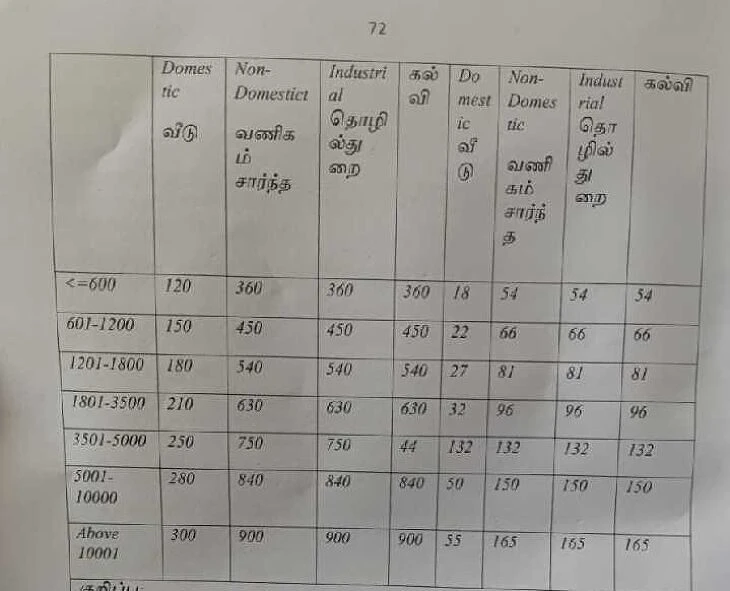 72
Domestic வீடு Non-Domestict வணிகம் சார்ந்த Industrial தொழில்துறை கல்வி Domestic வீடு Non-Domestic வணிகம் சார்ந்த Industrial தொழில்துறை கல்வி
<=600 120 360 360 360 18 54 54 54
601-1200 150 450 450 450 22 66 66 66
1201-1800 180 540 540 540 27 81 81 81
1801-3500 210 630 630 630 32 96 96 96
3501-5000 250 750 750 44 132 132 132 132
5001-10000 280 840 840 840 50 150 150 150
Above 10001 300 900 900 900 55 165 165 165